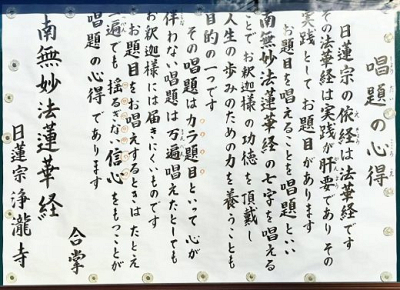 唱題の心得
日蓮宗の依経は法華経です
その法華経は実践が肝要であり その
実践として お題目があります
お題目を唱えることを唱題といい
南無妙法蓮華経の七字を唱える
ことで お釈迦様の功徳を頂戴し
人生の歩みのための力を養うことも
目的の一つです
その唱題はカラ題目といって 心が
伴わない唱題は万遍唱えたとしても
お釈迦様には届きにくいものです
お題目をお唱えするときは たとえ
一遍でも 揺るぎない信心をもつことが
唱題の心得であります
合掌
南無妙法蓮華経
日蓮宗 浄瀧寺